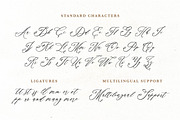 STANDARD CHARACTERS
A B C D E F G H I
J K L M N O P Q R
S T U V W X Y Z
LIGATURES
MULTILINGUAL SUPPORT
Multilingual Support